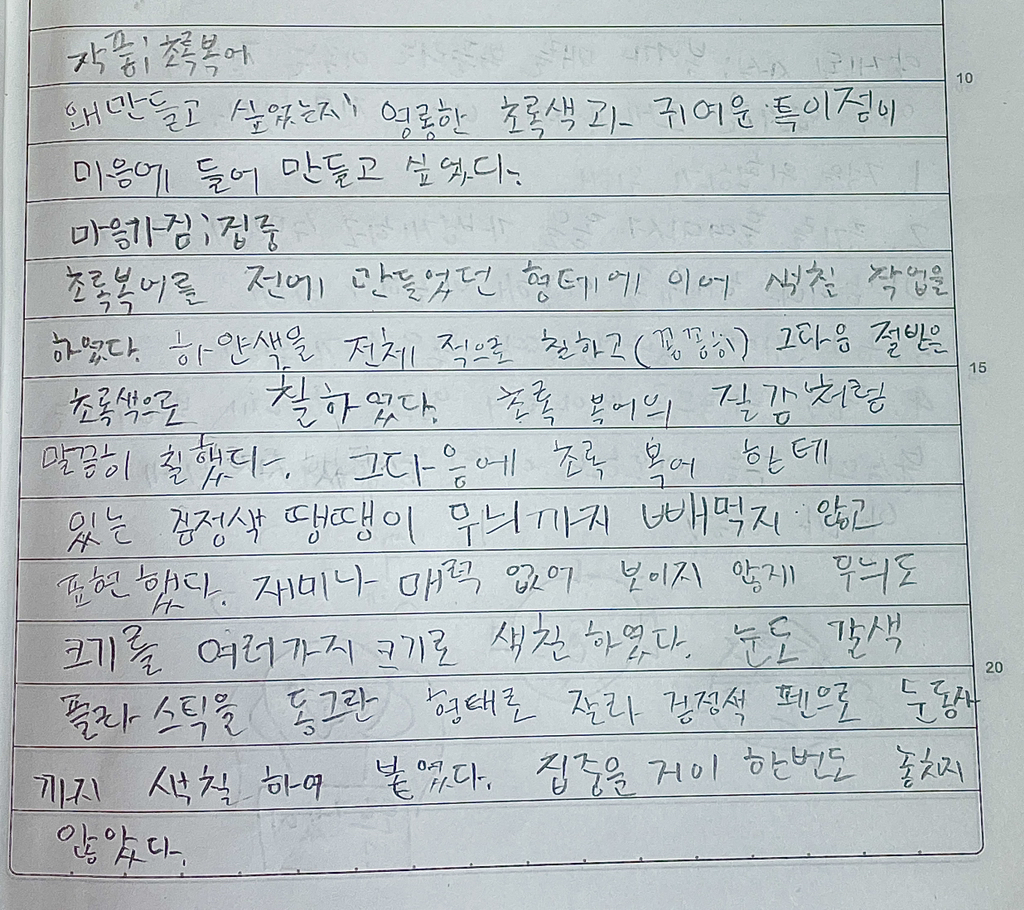 작품; 초록복어
왜만들고 싶었는지; 영롱한 초록색과 귀여운 특이점이
마음에 들어 만들고 싶었다.
마음가짐; 집중
초록복어를 전에 만들었던 형테에 이어 색칠 작업을
하였다. 하얀색을 전체 적으로 칠하고(꼼꼼히) 그다음 절반은
초록색으로 칠하였다. 초록 복어의 질감처럼
말끔히 칠했다. 그다음에 초록 복어 한테
있는 검정색 땡땡이 무늬까지 빼먹지 않고
표현했다. 재미나 매력 없어 보이지 않게 무늬도
크기를 여러가지 크기로 색칠 하였다. 눈도 갈색
플라스틱을 동그란 형태로 잘라 검정색 펜으로 눈동자
까지 색칠 하여 붙였다. 집중을 거이 한번도 놓치지
않았다.
15
20
10